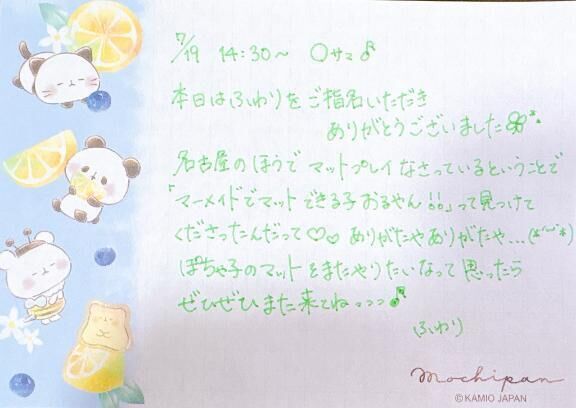 7/19 14:30～ ○サマ♪
本日はふわりをご指名いただき
ありがとうございました
名古屋のほうでマットプレイなさっているということで
「マーメイドでマットできる子おるやん!!」って見つけて
くださったんだって♡♡ ありがたやありがたや...(*˘︶˘*)
ぽちゃ子のマットをまたやりたいなって思ったら
ぜひぜひまた来てねっっっ♪
ふわり
mochipan
©KAMIO JAPAN